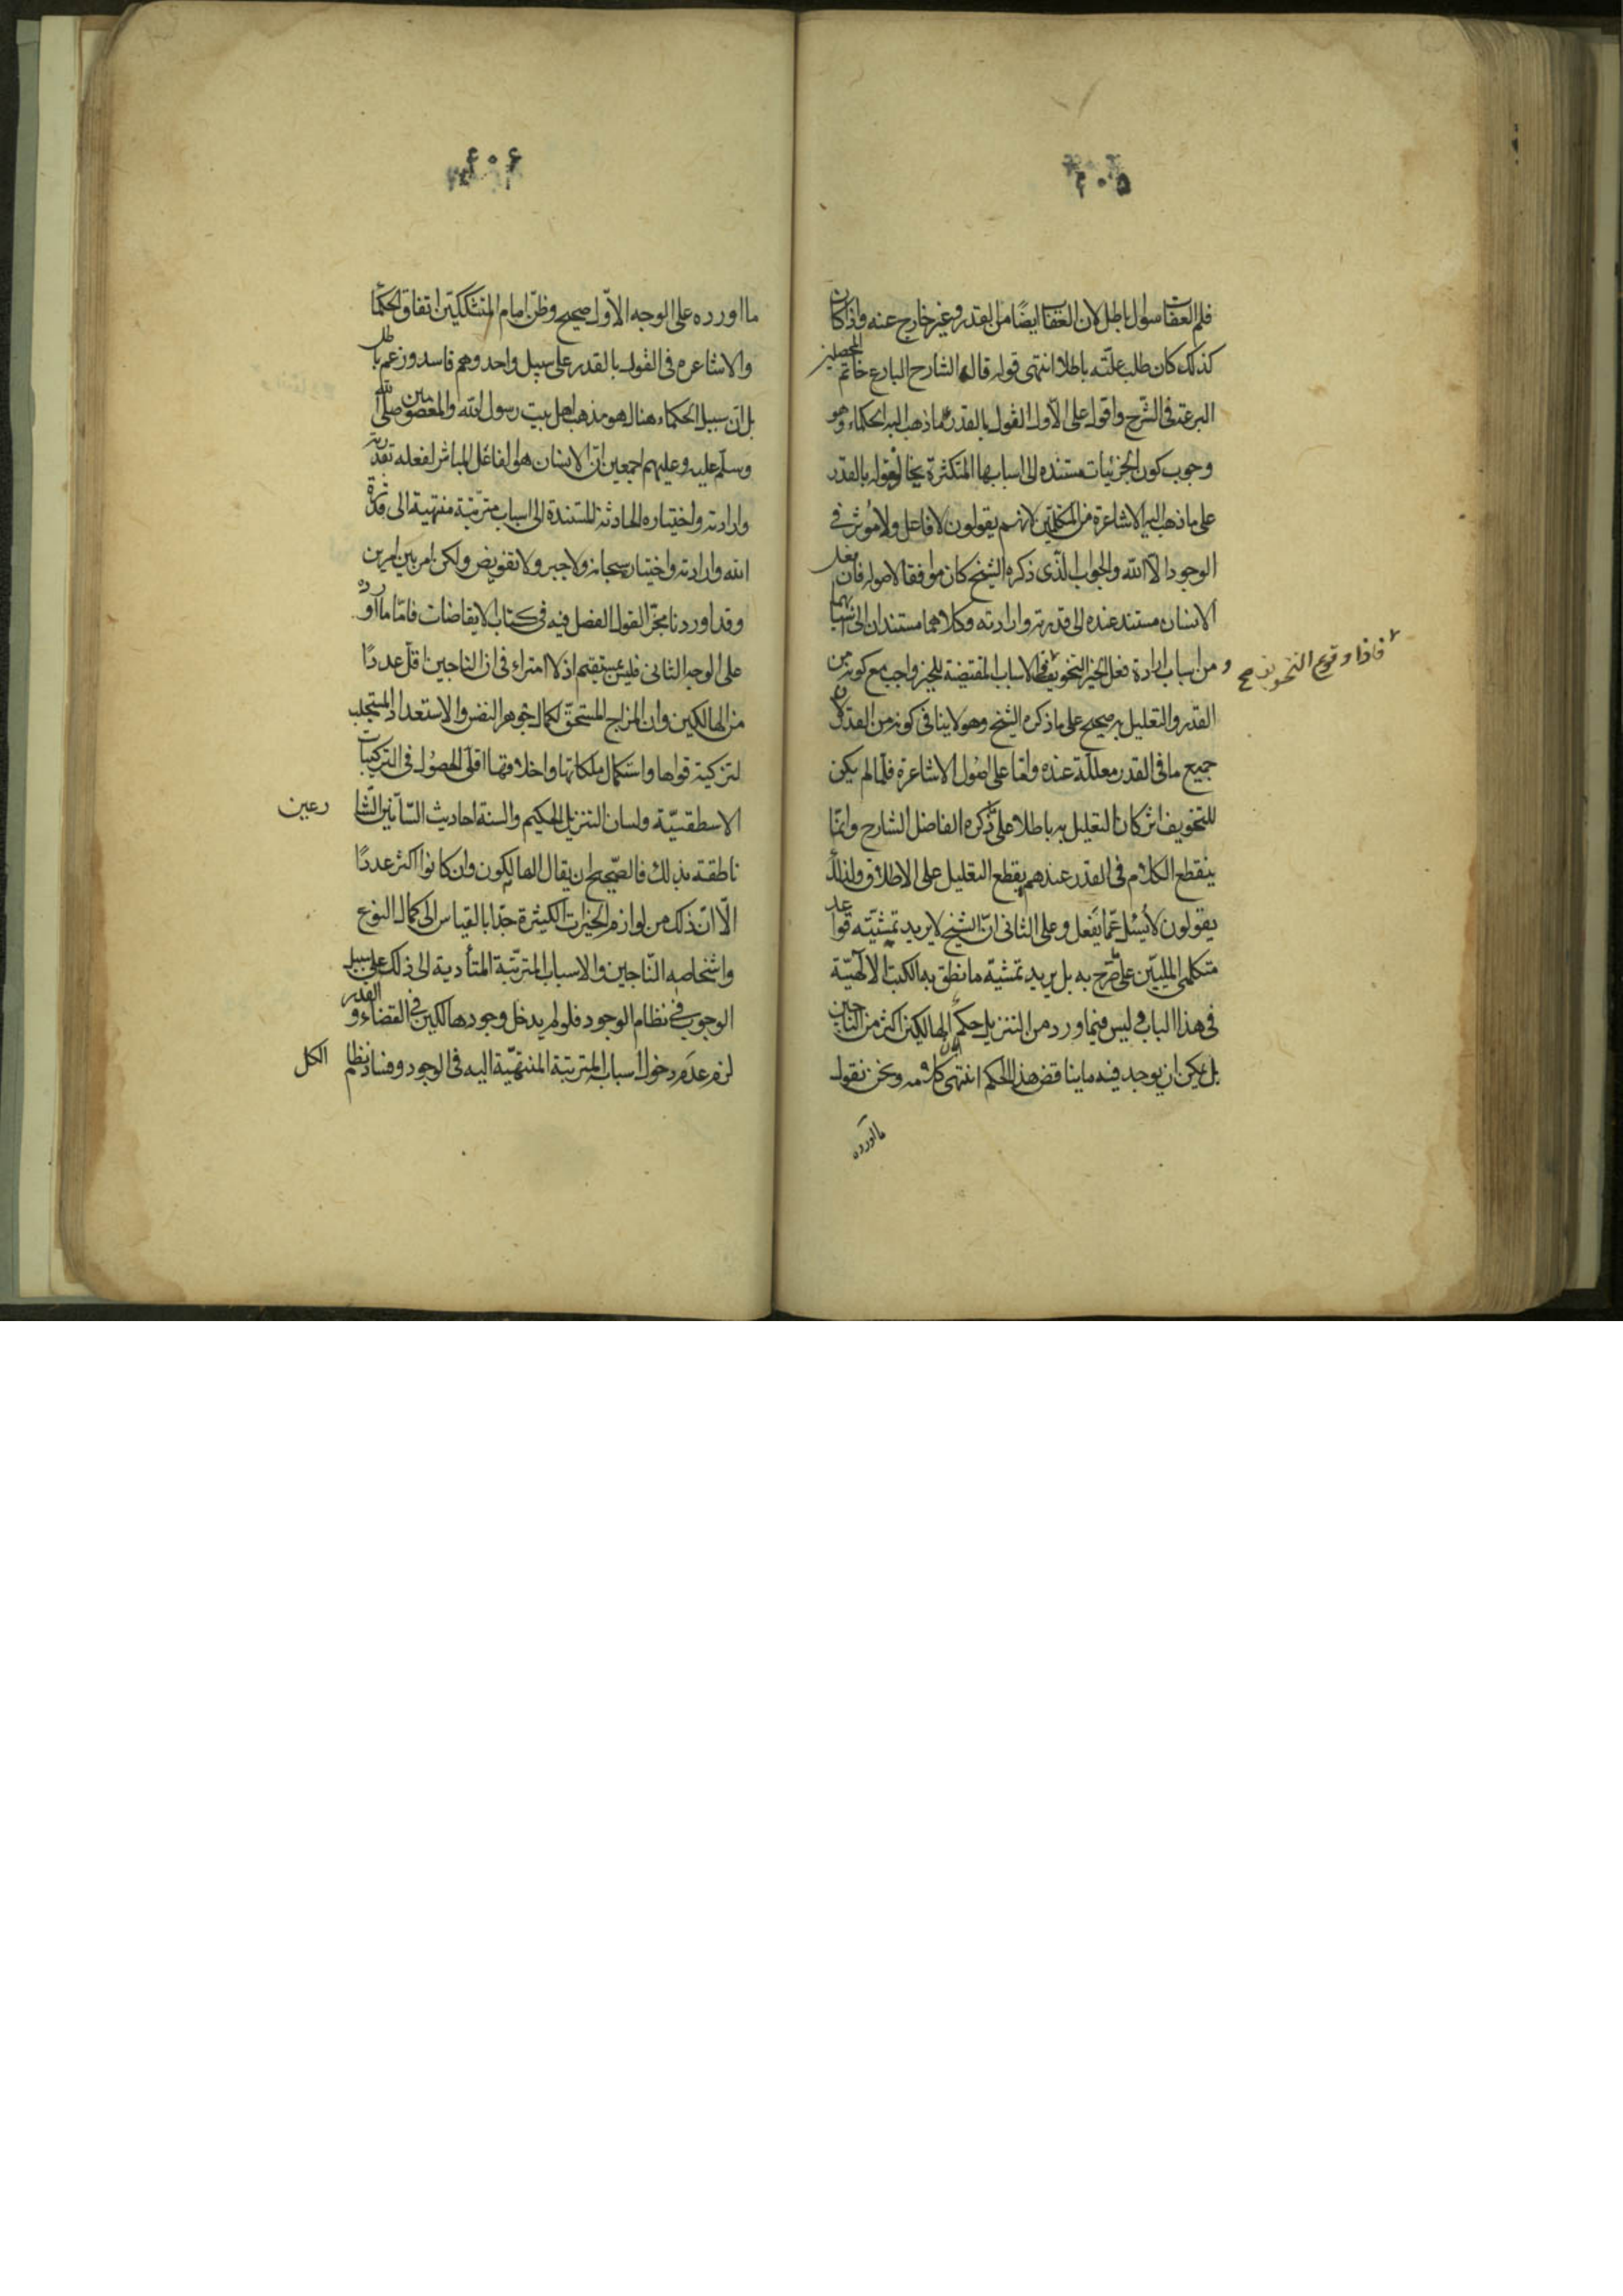 ٤٠٥
فلم العقاب سؤال باطل لان العقاب ايضًا من القدر وغير خارج عنه واذا كان
كذلك كان طلب علته باطلا انتهى قوله قال الشارح البارع خاتم المحصلين
البرعة فى الشرح واقول على الاول القول بالقدر على ما ذهب اليه الحكماء وهو
وجوب كون الجزئيات مستنده الى اسبابها المتكثرة يخالف القول بالقدر
على ما ذهب اليه الاشاعرة من المتكلمين لانهم يقولون لا فاعل ولا مؤثر فى
الوجود الا الله والجواب الذى ذكره الشيخ كان موافقا لاصوله فان فعل
الانسان مستند عنده الى قدرته وارادته وكلاهما مستندان الى اسبابهما
ومن اسباب ارادة فعل الخير التخويف فاذا وقوع التخويف صح فى الاسباب المقتضية للخير واجب مع كونه من
القدر والتعليل به صحيح على ما ذكره الشيخ وهو لا ينافى كونه من القدر لان
جميع ما فى القدر معللة عنده واما على اصول الاشاعرة فلما لم يكن
للتخويف اثر كان التعليل به باطلا على ما ذكره الفاضل الشارح وانما
ينقطع الكلام فى القدر عندهم بقطع التعليل على الاطلاق ولذلك
يقولون لا يُسئل عمّا يفعل وعلى الثانى ان الشيخ لا يريد تمشيته قواعد
متكلمى المليين على ما صرح به بل يريد تمشيته ما نطق به الكتب الالهيّة
فى هذا الباب وليس فيما ورد من التنزيل حكم بان الهالكين اكثر من الناجين
بل يمكن ان يوجد فيه ما يناقض هذا الحكم انتهى كلامه ونحن نقول
ما اورده
٤٠٤
ما اورده على الوجه الاول صحيح وظنّ امام المتشككين اتفاق الحكما
والاشاعره فى القول بالقدر على سبيل واحد وهم فاسد وزعم باطل
بل ان سبيل الحكماء هنالك هو مذهب اهل بيت رسول الله والمعصومين صلى الله
وسلم عليه وعليهم اجمعين ان الانسان هو الفاعل المباشر لفعله بقدرته
وارادته واختياره الحادثة المستندة الى اسباب مترتبة منتهية الى قدرة
الله وارادته واختياره سبحانه ولا جبر ولا تفويض ولكن امر بين امرين
وقد اوردنا مخّ القول الفصل فيه فى كتاب الايقاضات فامّا ما اورده
على الوجه الثانى فليس بمستقيم اذ لا امتراء فى ان الناجين اقل عددًا
من الهالكين وان المزاج المستحقّ لكمال جوهر النفس والاستعداد المستجلب
لتزكية قواها واستكمال ملكاتها واخلاقها اقلى الحصول فى التركيبات
الاسطقسيّة ولسان التنزيل الحكيم والسنة احاديث السّانّين الشا رعين
ناطقة بذلك فالصحيح ان يقال الهالكون وان كانوا اكثر عددًا
الّا انّ ذلك من لوازم الخيرات الكثيرة جدّا بالقياس الى كمال النوع
واشخاصه النّاجين والاسباب المترتّبة المتأدية الى ذلك على سبيل
الوجوب فى نظام الوجود فلو لم يدخل وجود هالكين فى القضاء والقدر
لزم عدم دخول اسباب المترتبة المنتهيّة اليه فى الوجود وفساد نظام الكل